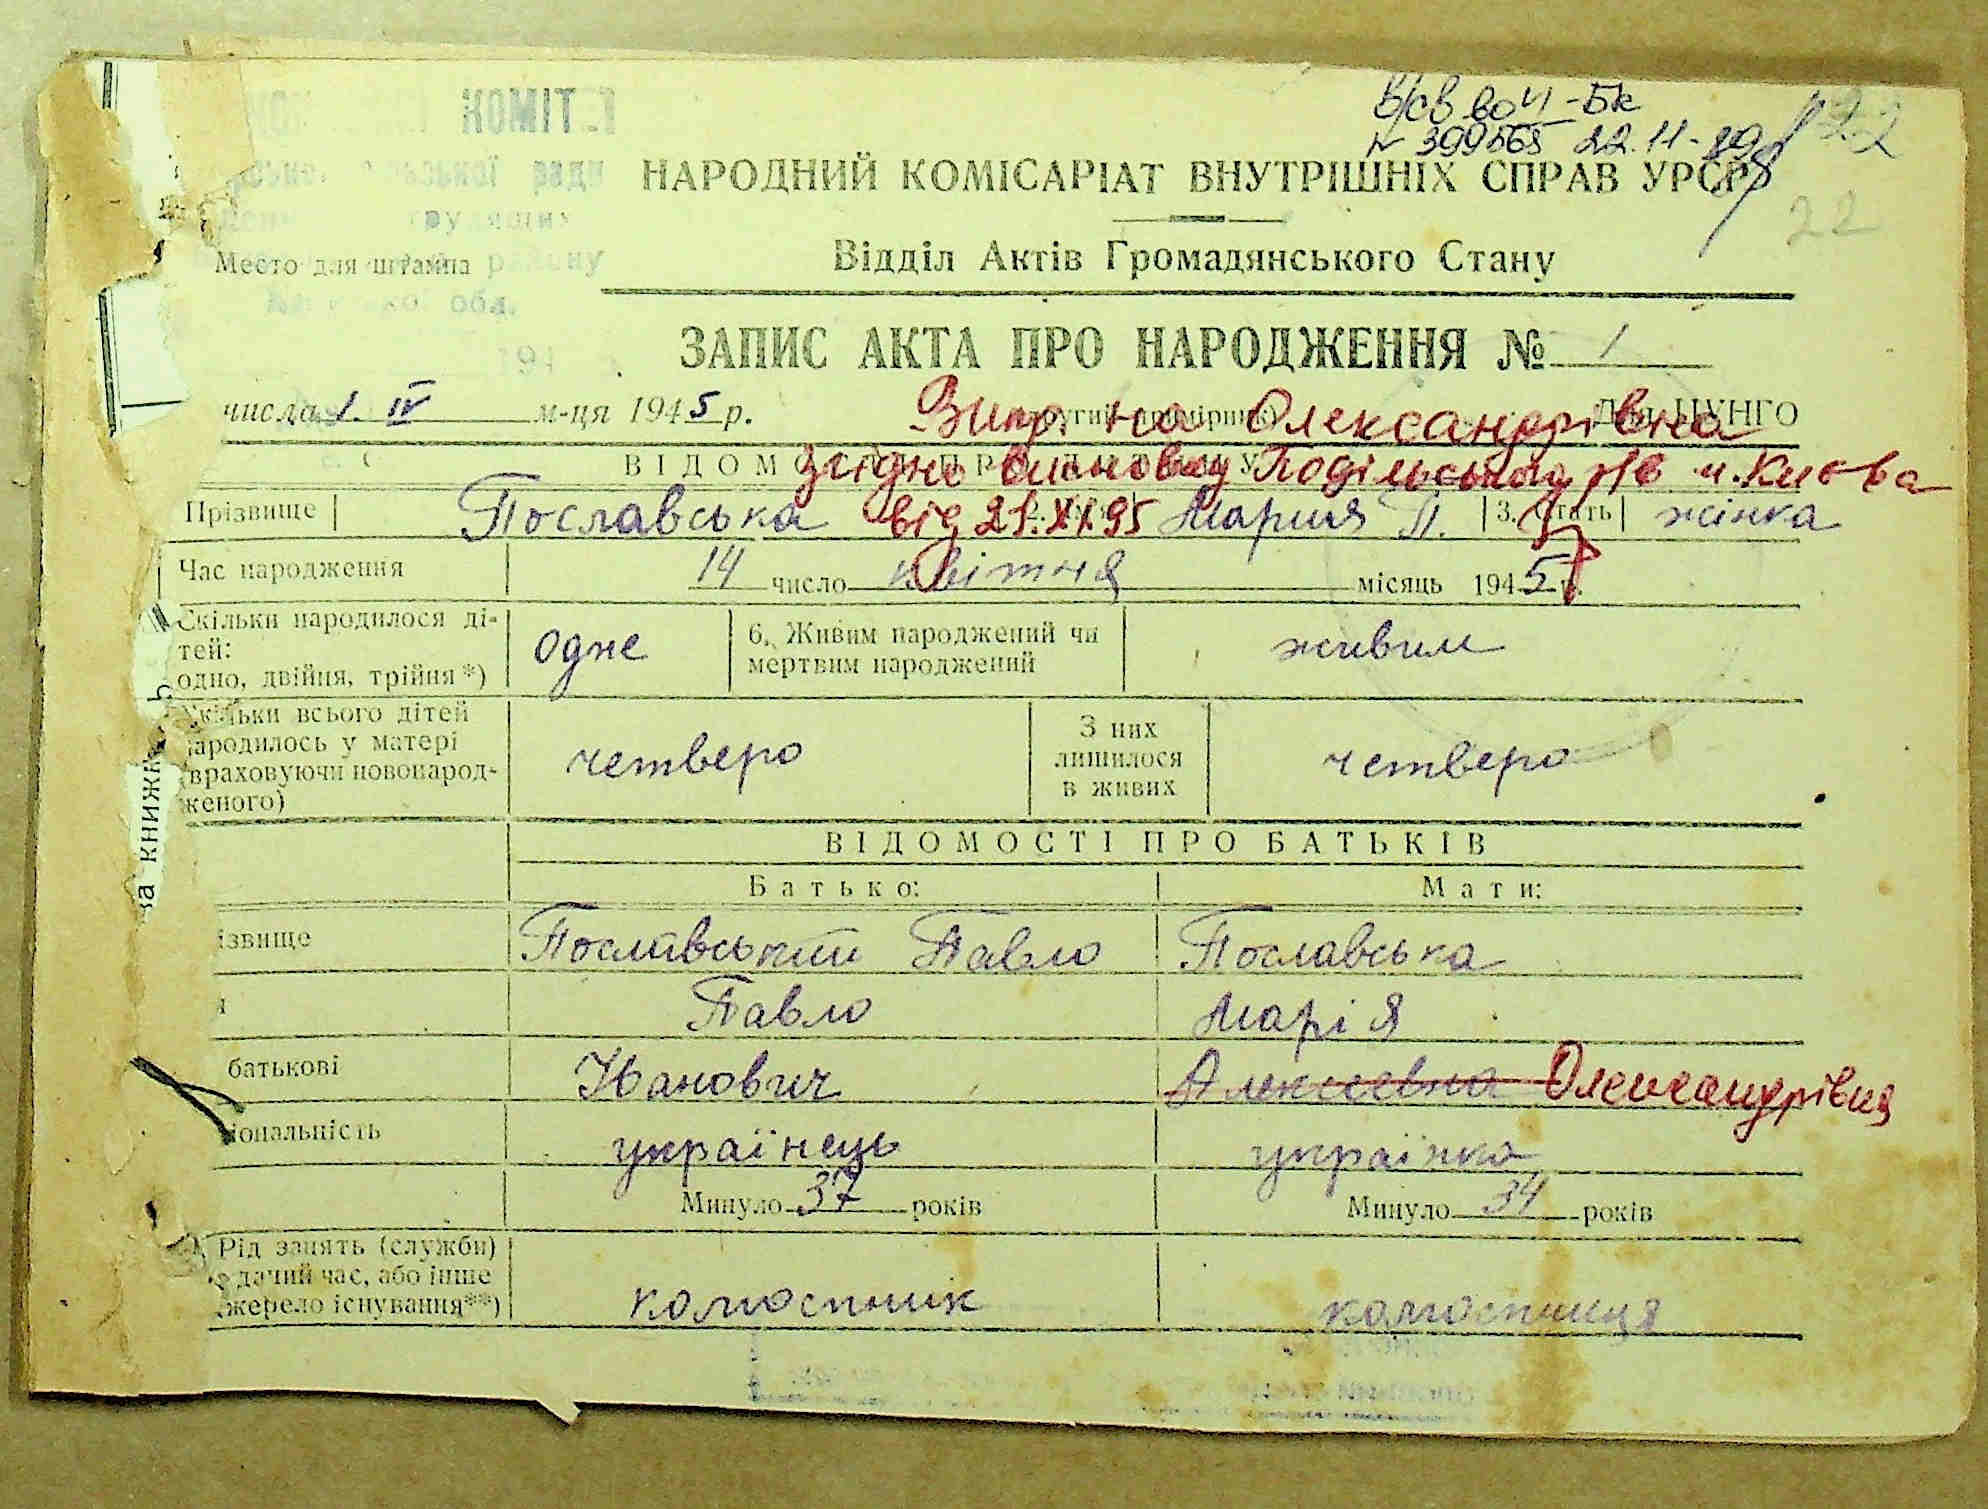 В/св во VI-БК
N 399568 22.11-89
22
22
НАРОДНИЙ КОМІСАРІАТ ВНУТРІШНІХ СПРАВ УРСР
Место для штампа
Відділ Актів Громадянського Стану
обл.
194
ЗАПИС АКТА ПРО НАРОДЖЕННЯ № 1
числа 1. IV м-ця 1945 р.
на Олександрівна
Для ЦУНГО
згідно висновку Подільського р/в м. Києва
від 21.XI.95
Прізвище Пославська Мария П. 3. Стать жінка
Час народження 14 число квітня місяць 1945 р.
Скільки народилося ді-
тей:
одно, двійня, трійня*)
одне
6. Живим народжений чи
мертвим народжений
живим
Скільки всього дітей
народилось у матері
(враховуючи новонарод-
женого)
четверо
З них
лишилося
в живих
четверо
за книжк
ВІДОМОСТІ ПРО БАТЬКІВ
Батько: Мати:
ізвище Пославський Павло Пославська
я Павло Марія
батькові Иванович Алексеевна Олександрівна
іональність українець українка
Минуло 37 років Минуло 34 років
Рід занять (служби)
дачий час, або інше
жерело існування**)
колгоспник колгоспниця